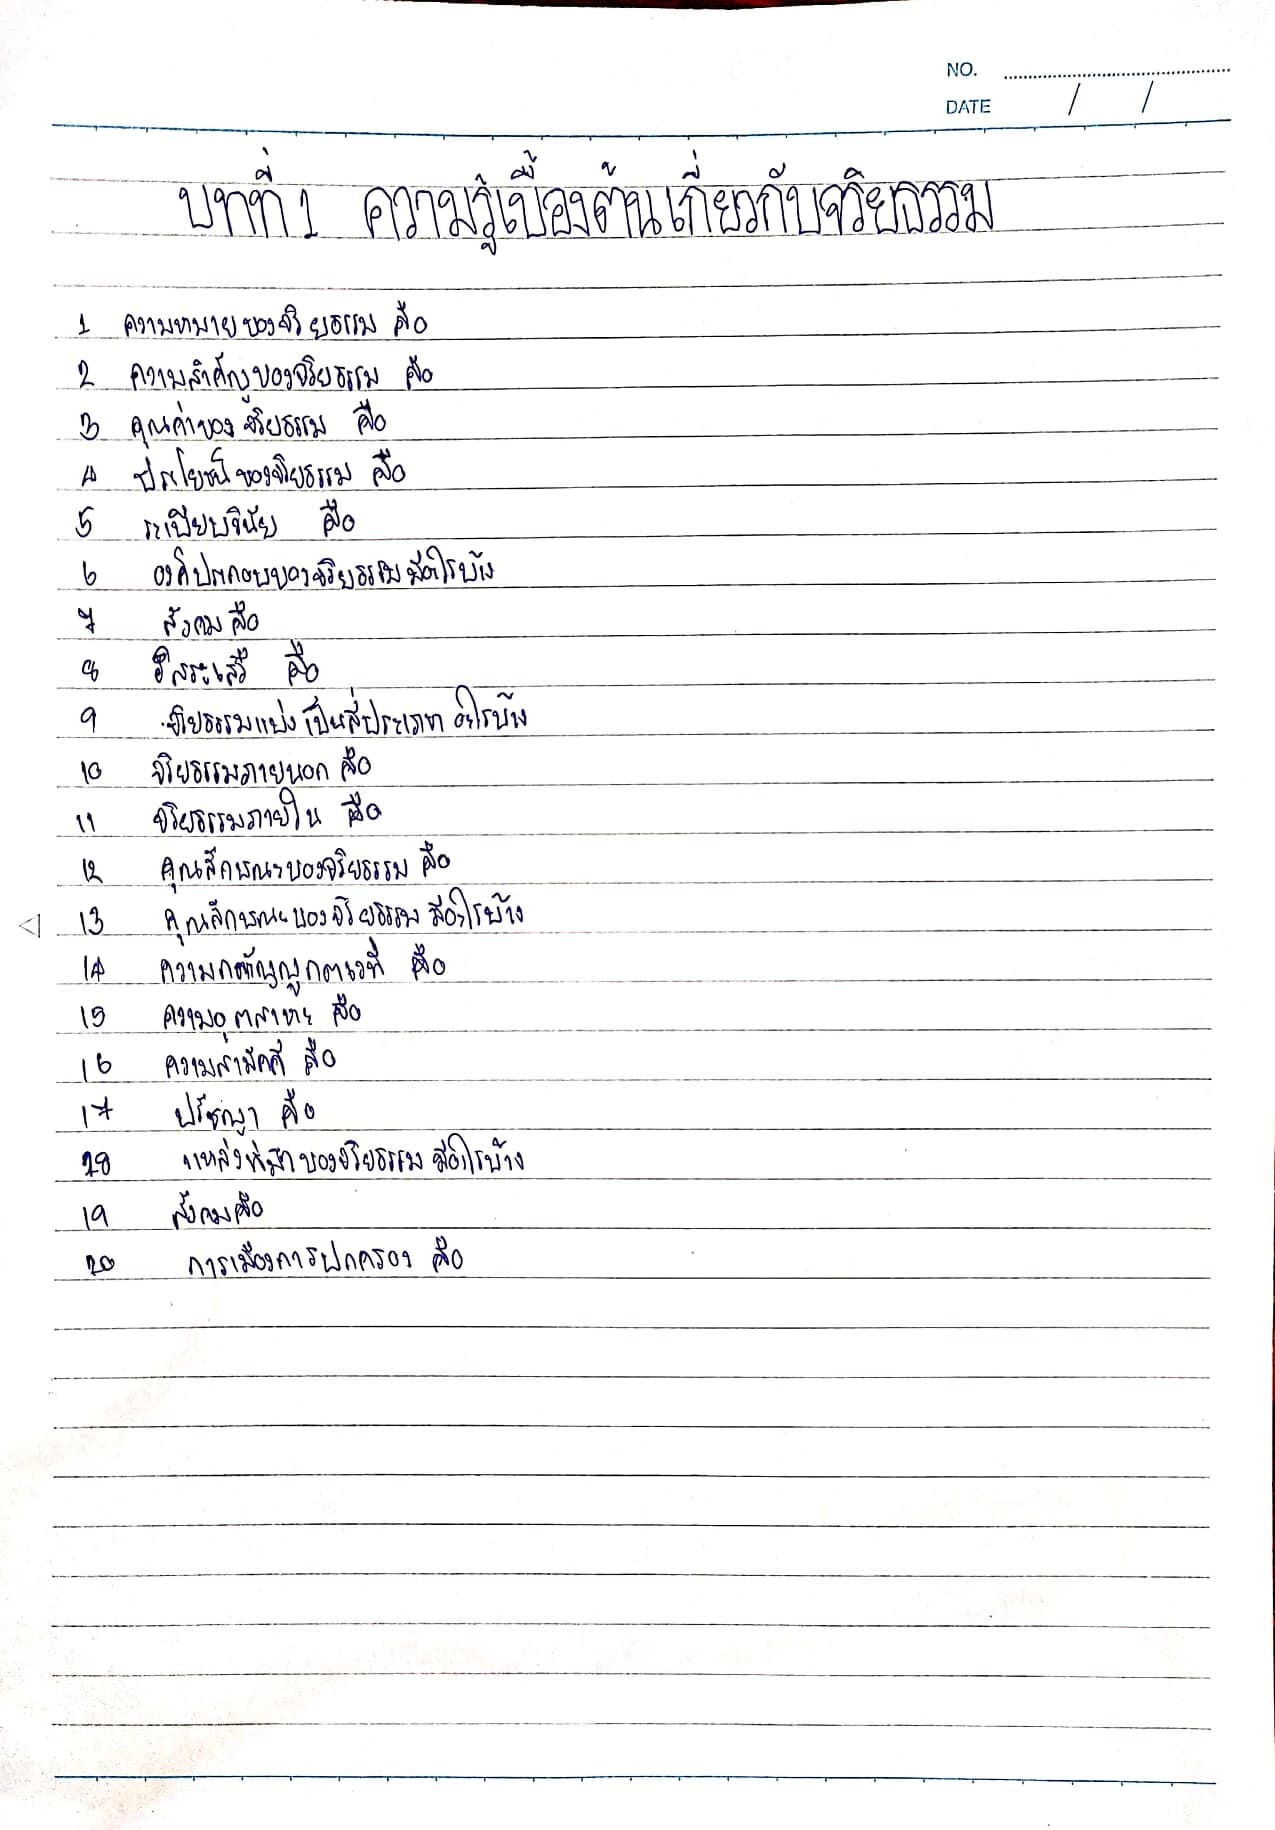 NO.
DATE / /
บทที่ 1 ความรู้เบื้องต้นเกี่ยวกับจริยธรรม
1 ความหมายของจริยธรรม คือ
2 ความสำคัญของจริยธรรม คือ
3 คุณค่าของจริยธรรม คือ
4 ประโยชน์ของจริยธรรม คือ
5 ระเบียบวินัย คือ
6 องค์ประกอบของจริยธรรมมีอะไรบ้าง
7 สังคม คือ
8 อิสระเสรี คือ
9 จริยธรรมแบ่งเป็นสี่ประเภท อะไรบ้าง
10 จริยธรรมภายนอก คือ
11 จริยธรรมภายใน คือ
12 คุณลักษณะของจริยธรรม คือ
13 คุณลักษณะของจริยธรรม มีอะไรบ้าง
14 ความกตัญญูกตเวที คือ
15 ความอุตสาหะ คือ
16 ความสามัคคี คือ
17 ปรัชญา คือ
18 แหล่งที่มาของจริยธรรม มีอะไรบ้าง
19 สังคมคือ
20 การเมืองการปกครอง คือ